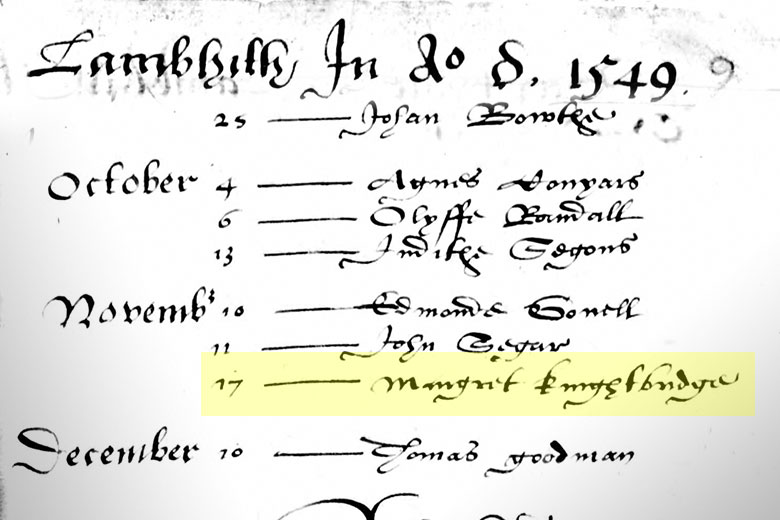 In Ao d. 1549.
25 Johan Bowthe
October 4 Agnes
6 Olyffe Randall
13 Judithe Segons
Novembr 10 Edmonde Sonell
11 John Segar
17 Margret knightbridge
December 10 Thomas goodman